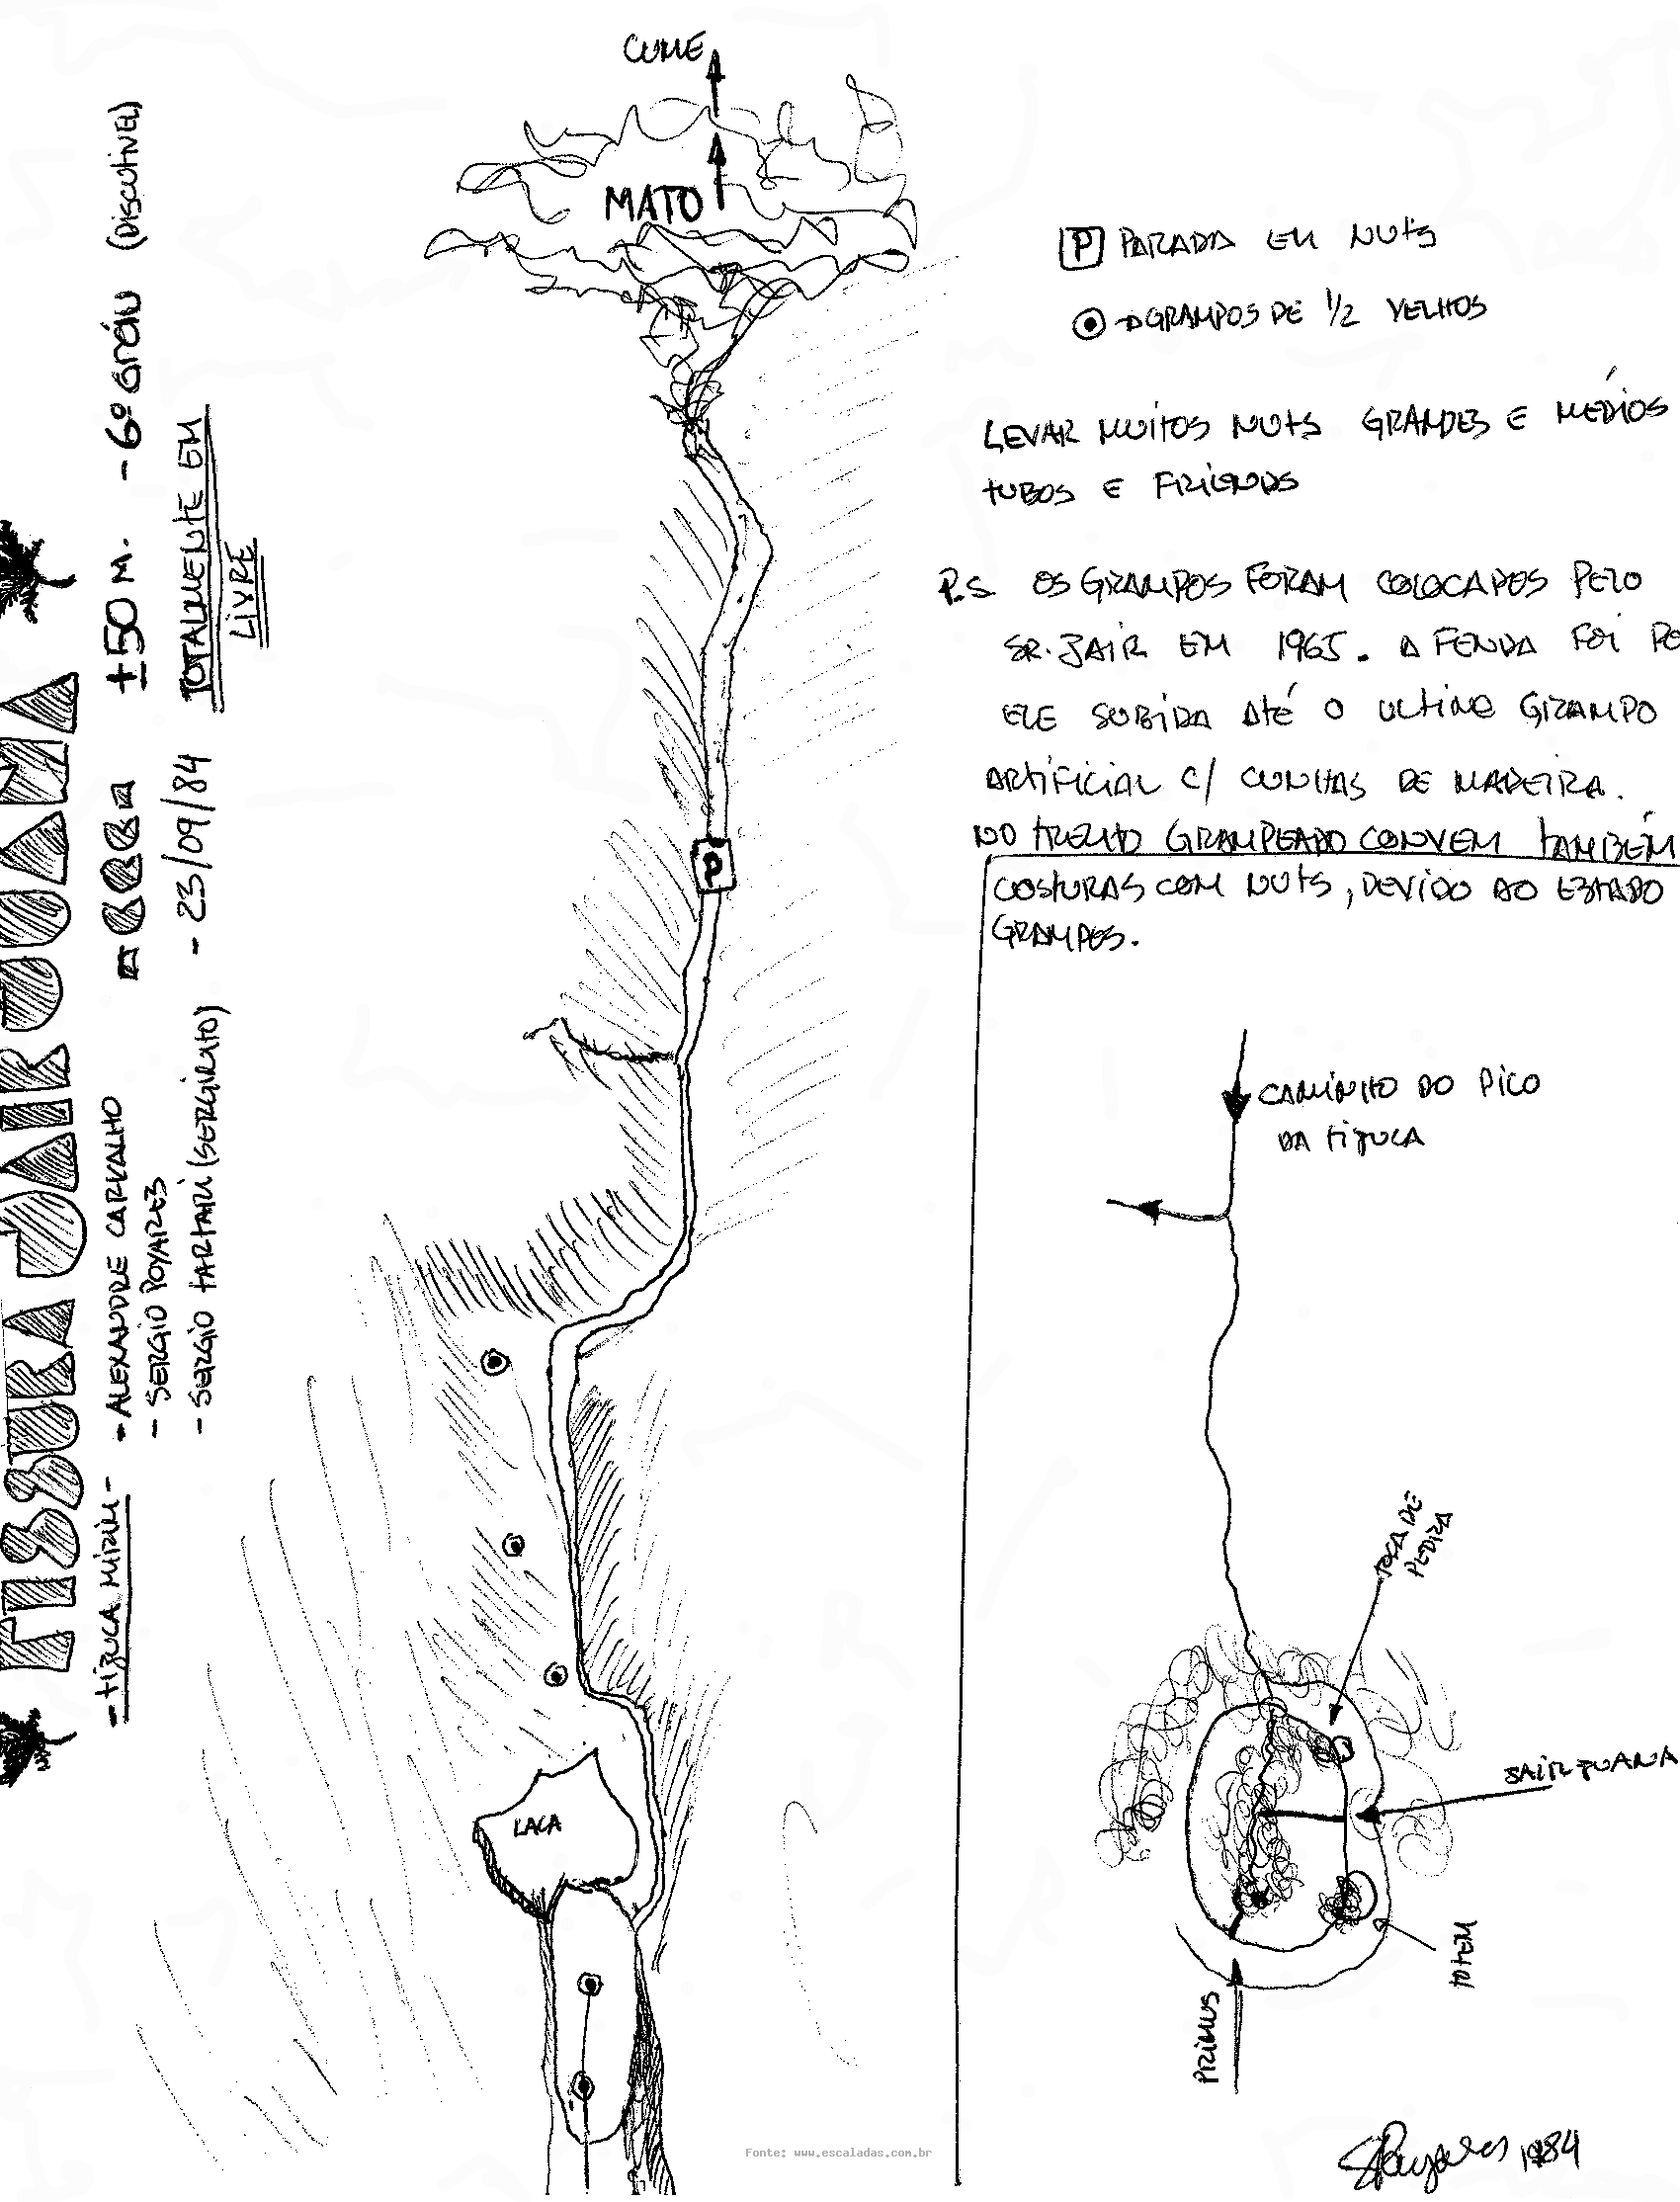 FISSURA JAIR JUANA
- TIJUCA MIRIM -
- ALEXANDRE CARVALHO
- SERGIO POYARES
- SERGIO TARTARI (SERGINHO)
- 23/09/84
± 50 M. - 6º GRÁU (DISCUTIVEL)
TOTALMENTE EM
LIVRE
CUME
MATO
P
LACA
P PARADA EM NUTS
GRAMPOS DE 1/2 VELHOS
LEVAR MUITOS NUTS GRANDES E MÉDIOS
TUBOS E FRIENDS
P.S. OS GRAMPOS FORAM COLOCADOS PELO
SR. JAIR EM 1965. A FENDA FOI PO
ELE SUBIDA ATÉ O ULTIMO GRAMPO
ARTIFICIAL C/ CUNHAS DE MADEIRA.
NO TRECHO GRAMPEADO CONVEM TAMBÉM
COSTURAS COM NUTS, DEVIDO AO ESTADO
GRAMPOS.
CAMINHO DO PICO
DA TIJUCA
TOCA DE
PEDRA
JAIR JUANA
TOTEM
PRIMUS
SPoyares 1984
Fonte: www.escaladas.com.br